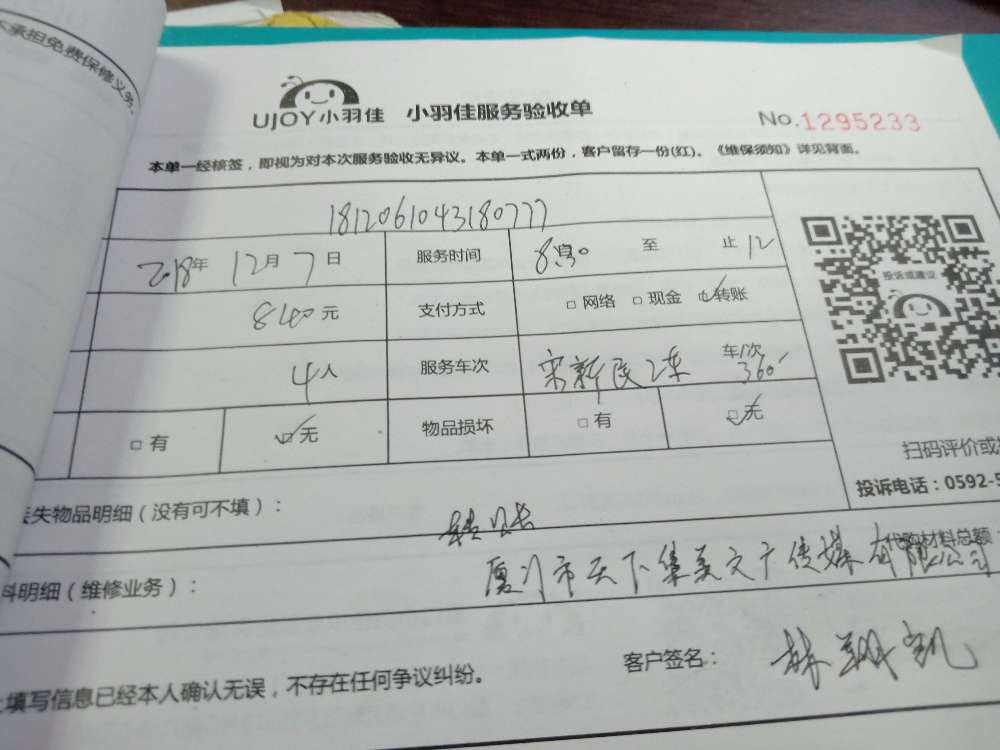 承担免费保修义务
UJOY小羽佳 小羽佳服务验收单
No.1295233
本单一经核签，即视为对本次服务验收无异议。本单一式两份，客户留存一份(红)。《维保须知》详见背面。
1812061043180777
2018年 12月 7日 服务时间 8:30 至 止 12
840元 支付方式 □ 网络 □ 现金 ☑转账
投诉或建议
4人 服务车次 宋新民 2车 车/次 360
□ 有 ☑无 物品损坏 □ 有 ☑无
扫码评价或
投诉电话：0592-5
丢失物品明细（没有可不填）：
转账
代购材料总额
料明细（维修业务）： 厦门市天下集美文广传媒有限公司
客户签名：
填写信息已经本人确认无误，不存在任何争议纠纷。